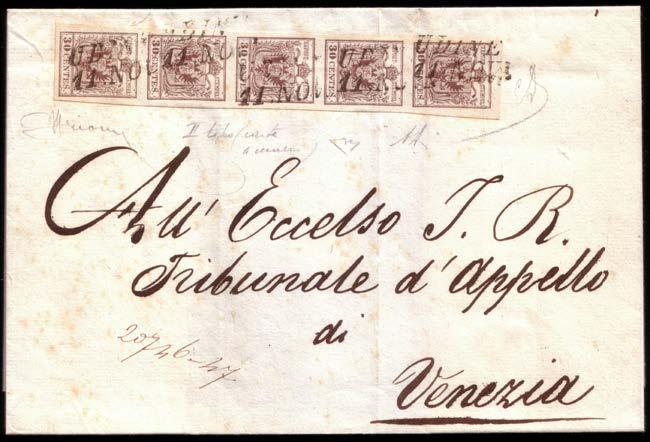 30 CENTES. 30 CENTES. 30 CENTES. 30 CENTES. 30 CENTES.
UDINE
11 NOV
11 NOV
11 NOV
UDINE
11
UDINE
II tipo carta
a
All' Eccelso I. R.
Tribunale d'Appello
di
Venezia
20746-47